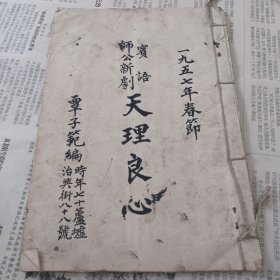 一九五七年春節
賓語
師公新劇
天理良心
覃子範編
時年七十蘆墟
治興街八十八號